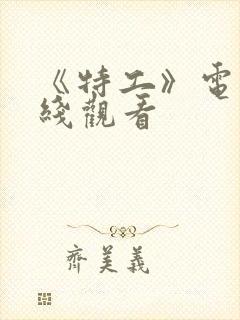 《特工》電
綫觀看
齊美義